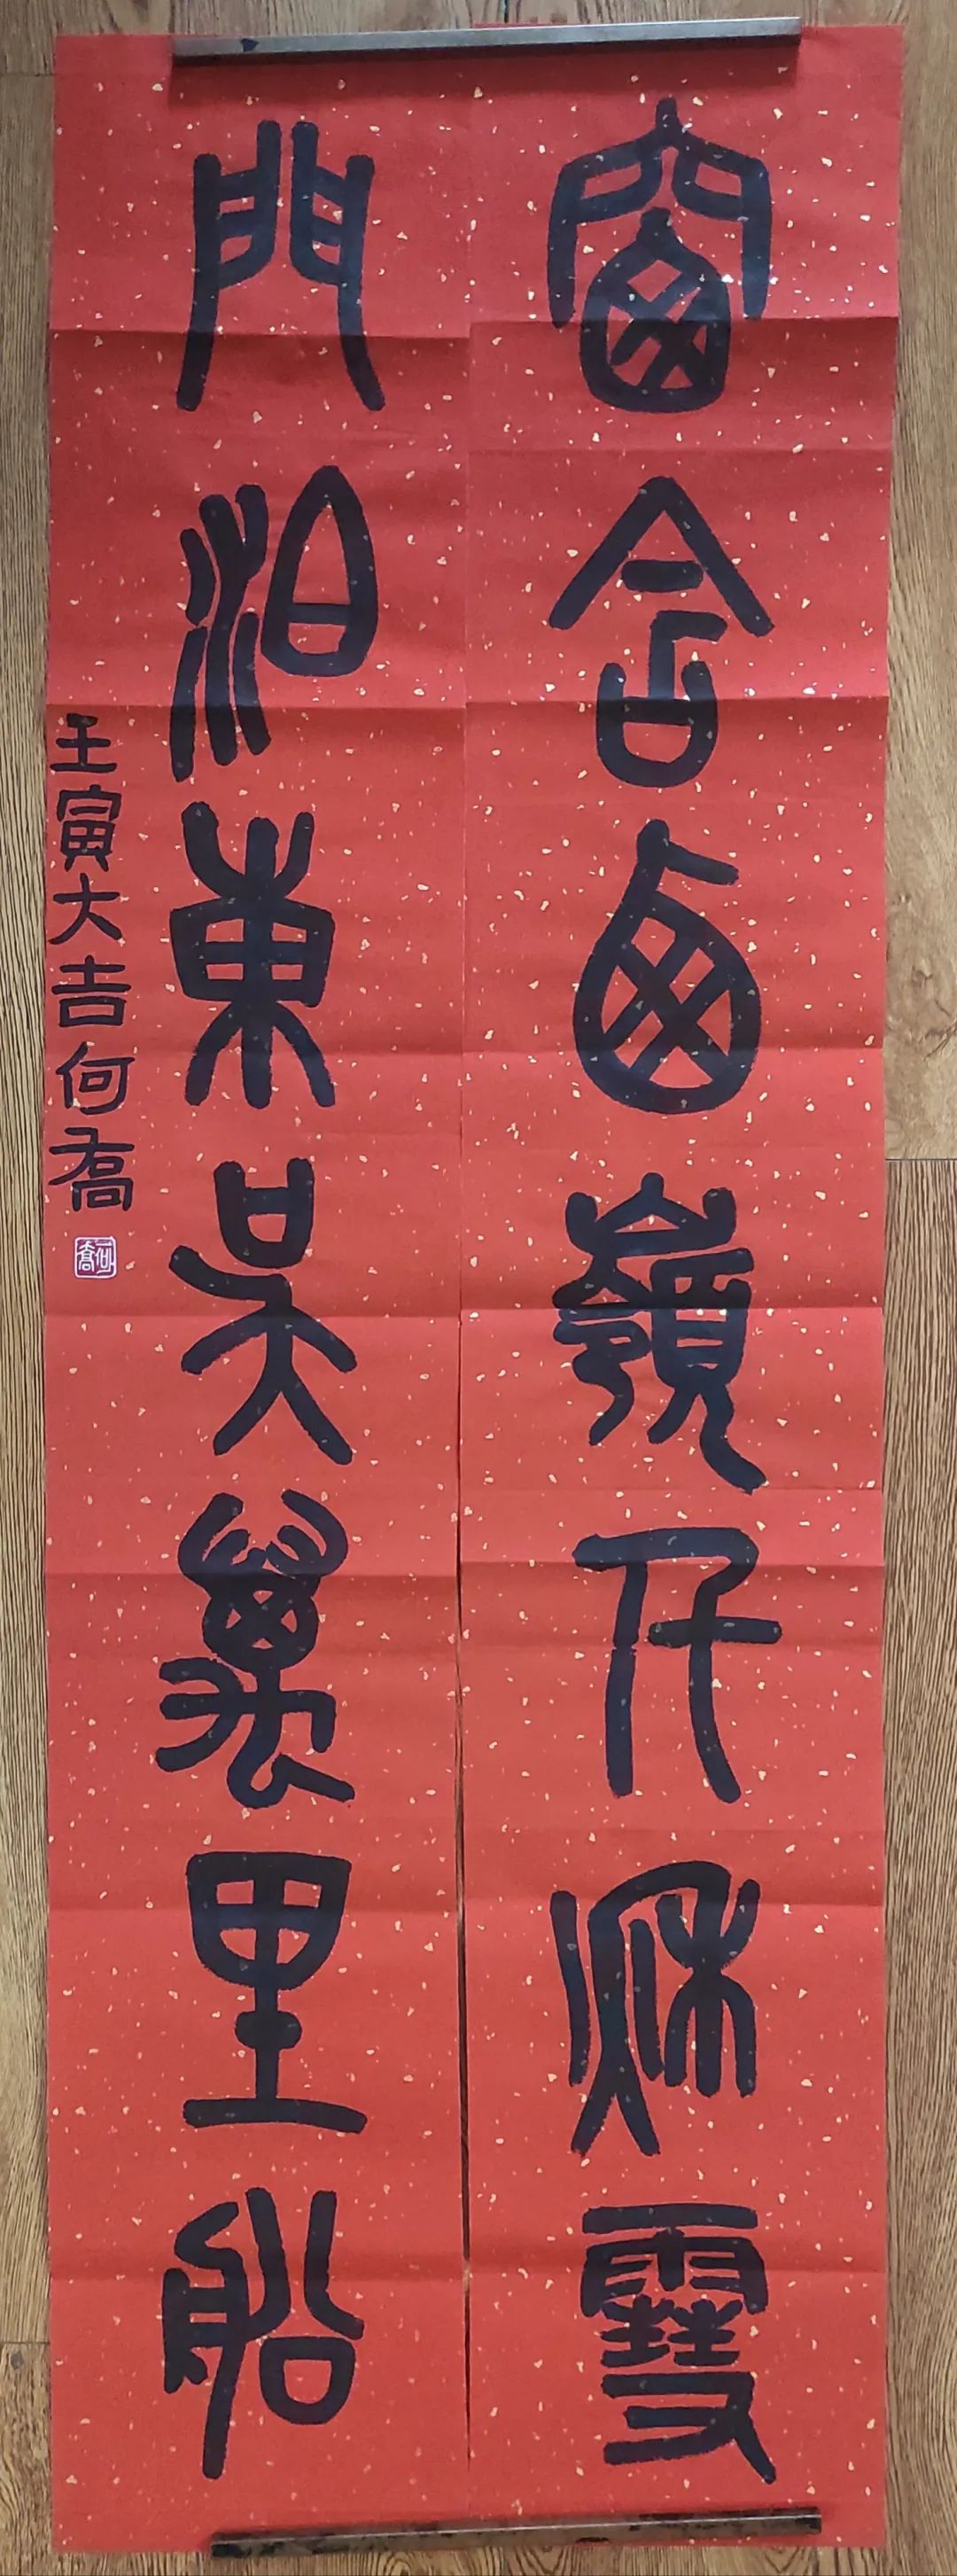 窗含西嶺千秋雪
門泊東吳萬里船
壬寅大吉何喬
何喬